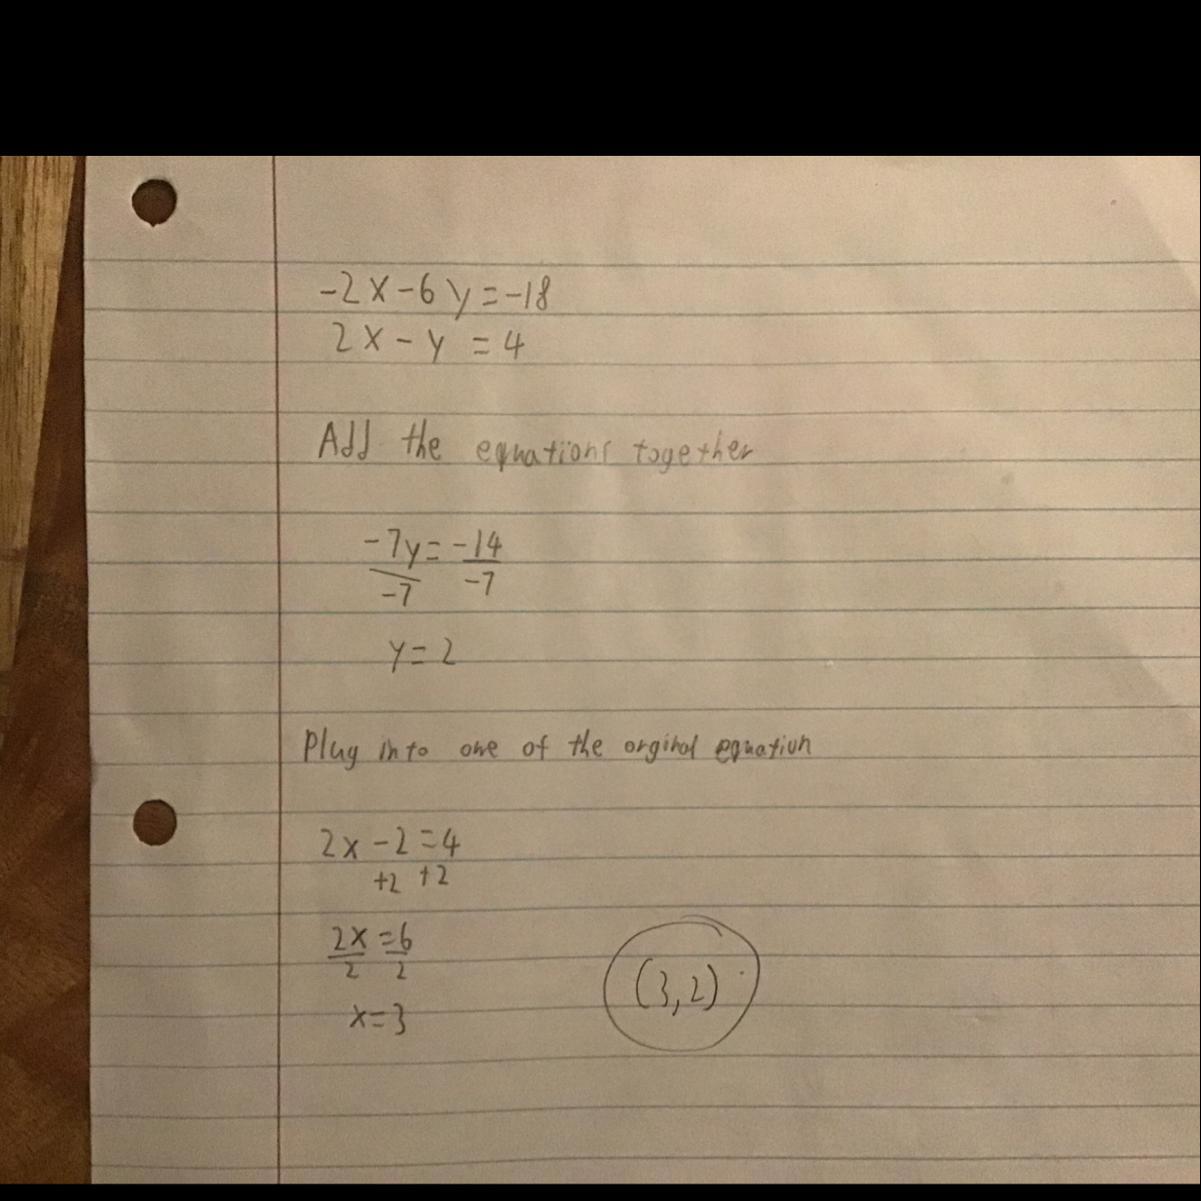 -2x-6y=-18
2x-y=4
Add the equations together
-7y=-14
-7 -7
y=2
Plug into one of the orginal equation
2x-2=4
+2 +2
2x=6
2 2
x=3
(3,2)